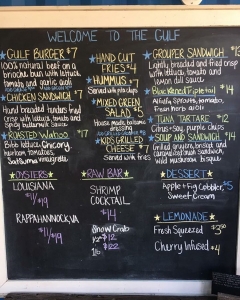 WELCOME TO THE GULF
GULF BURGER $7
100% natural beef on a
brioche bun with lettuce,
tomato and garlic aioli
CHICKEN SANDWICH $7
Hand breaded tenders fried
Crisp with lettuce, tomato and
Spicy buttermilk Sauce
ROASTED Wahoo $17
Bibb lettuce, Chicory,
heirloom tomatoes,
Satsuma vinaigrette
HAND CUT
FRIES $4
HUMMUS $7
Served with pita chips
MIXED GREEN
SALAD $5
House made balsamic
dressing
KIDS GRILLED
CHEESE $7
Served with fries
GROUPER SANDWICH $13
Lightly breaded and fried crisp
with lettuce, tomato and
lemon dill sauce
Blackened Tripletail $14
Alfalfa Sprouts, tomato,
Fresh herb aioli
TUNA TARTARE $12
Citrus-soy, purple chips
SOUP AND SANDWICH $14
Grilled gruyere, brisket and
caramelized onion Sandwich
Wild mushroom bisque
OYSTERS
LOUISIANA
$11/$19
RAPPAHANNOCK, VA
$11/$19
RAW BAR
SHRIMP
COCKTAIL
$14
Snow Crab
1/2 $12
1lb $22
DESSERT
Apple + Fig Cobbler, $5
Sweet Cream
LEMONADE
Fresh Squeezed $3.00
Cherry Infused $4